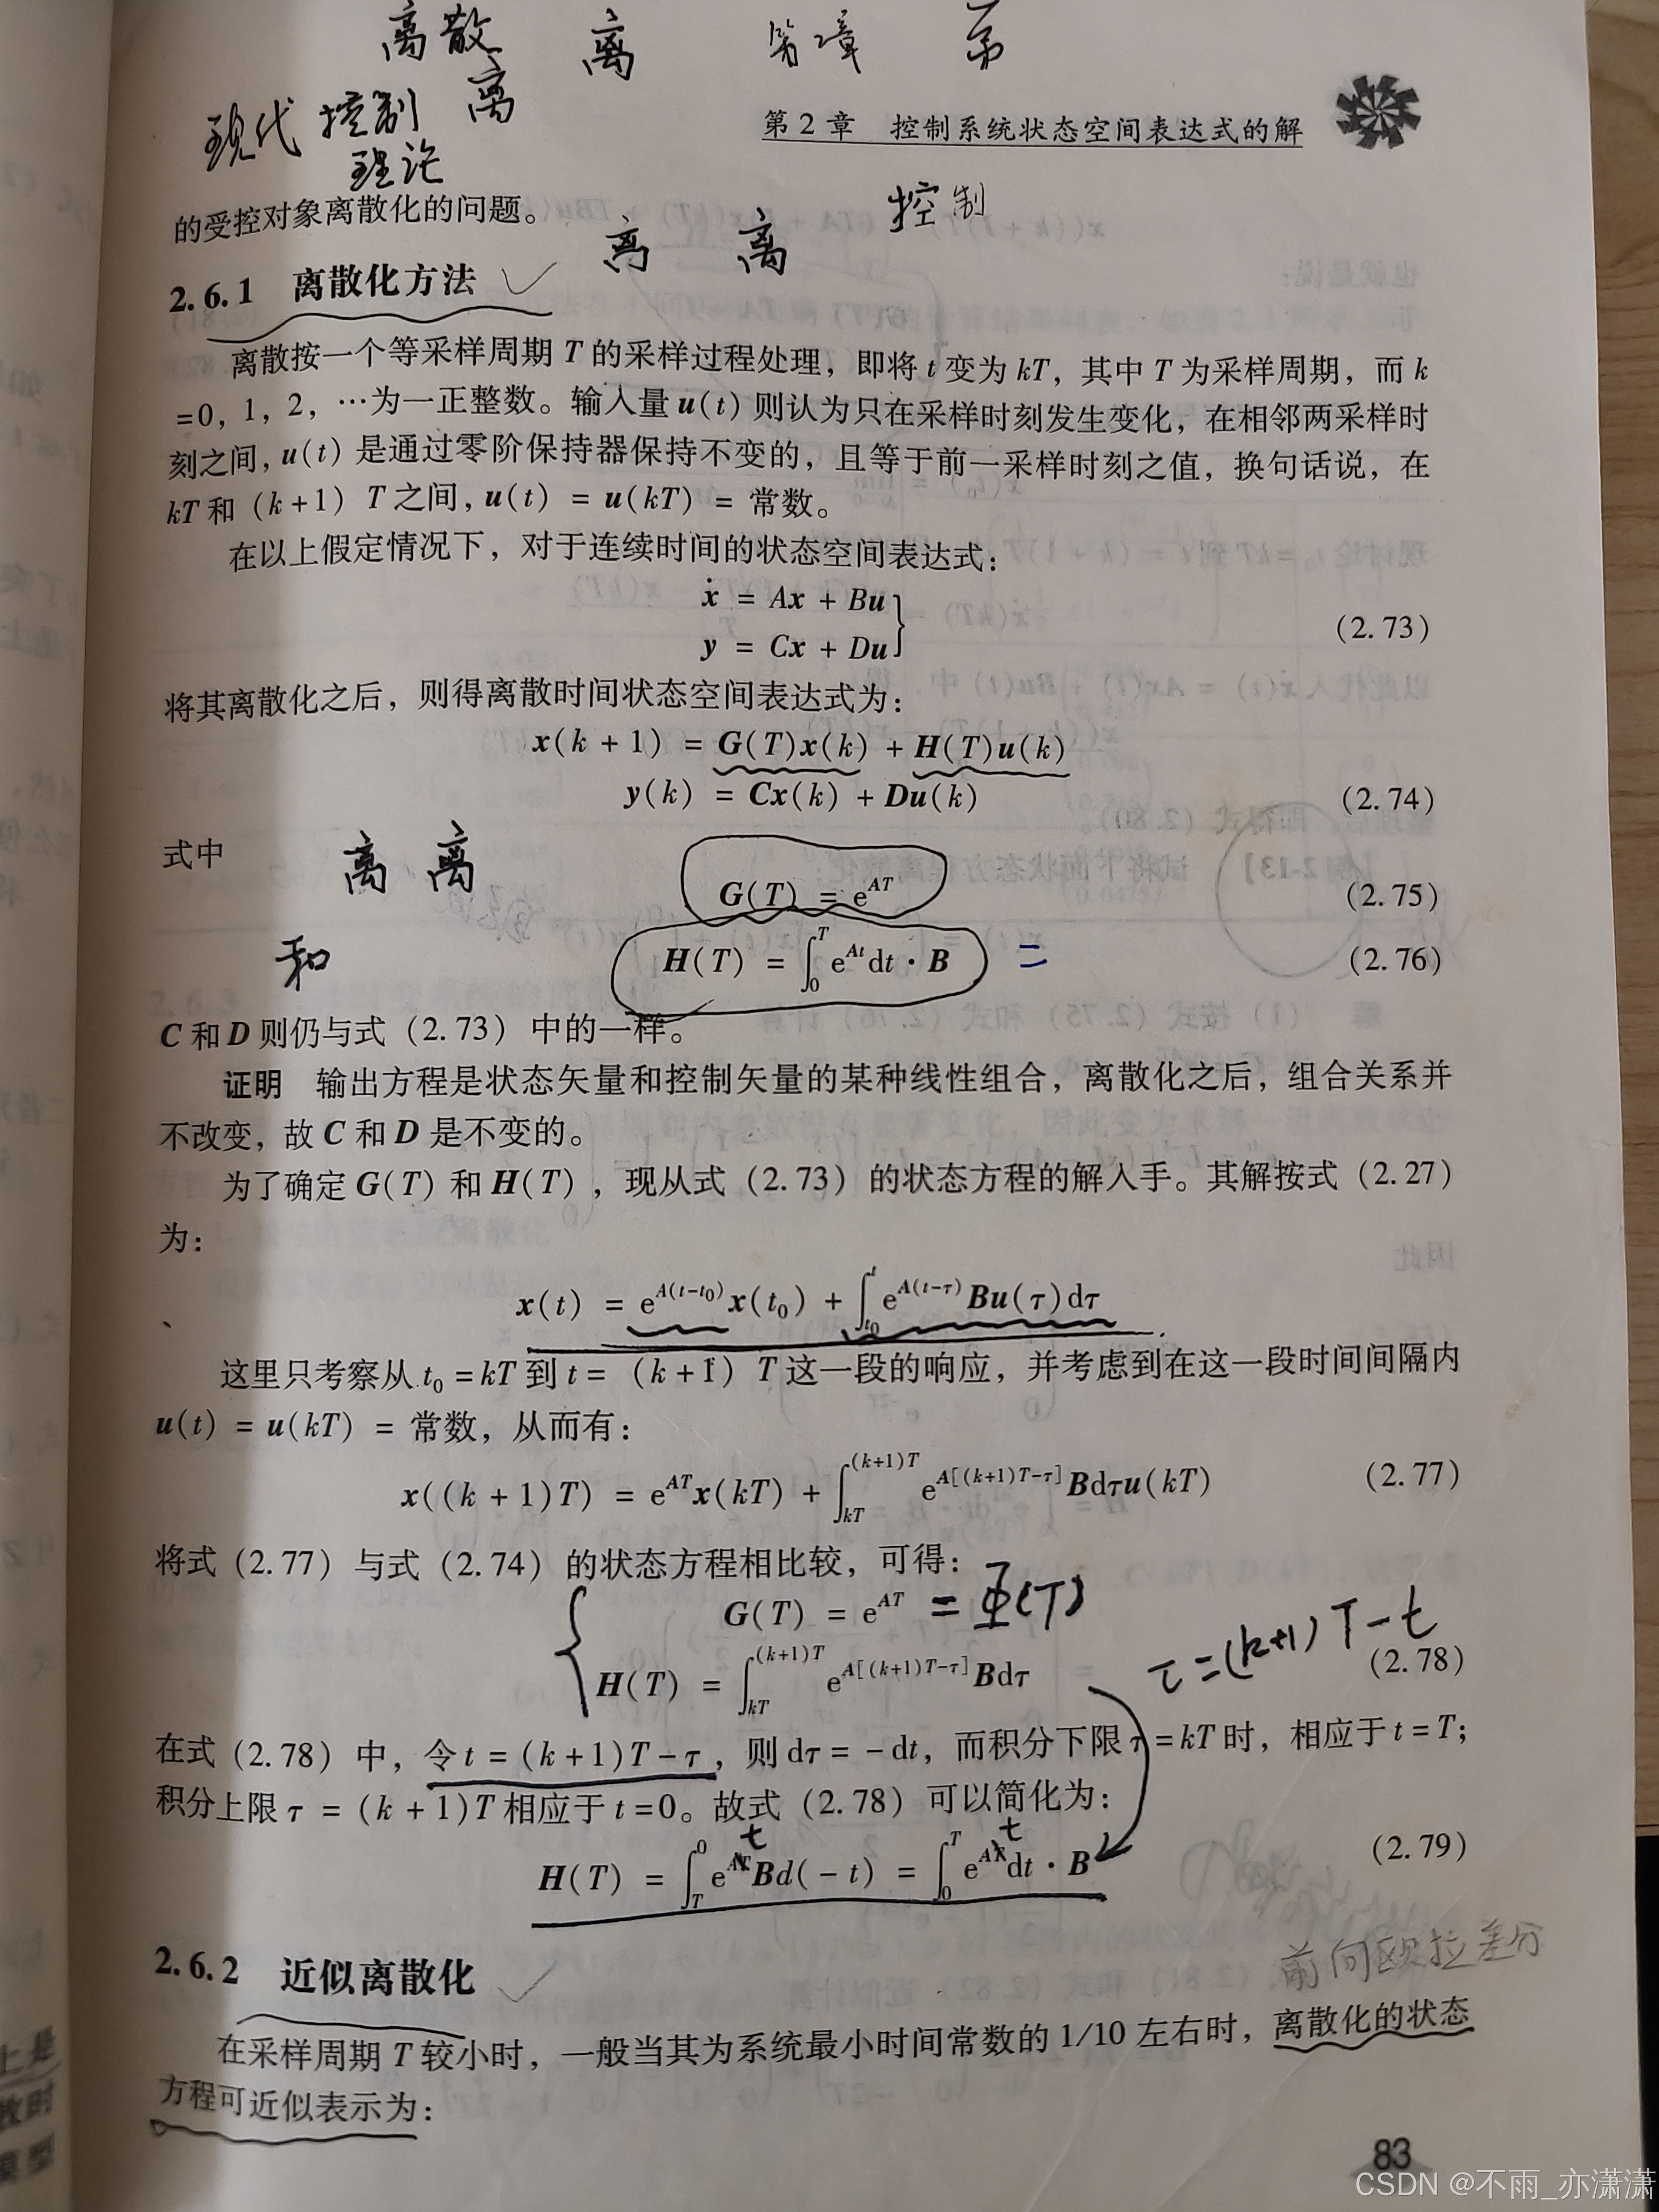 离散 离 第2章 第
现代 控制 离
理论
第 2 章 控制系统状态空间表达式的解
控制
的受控对象离散化的问题。
离 离
2.6.1 离散化方法
离散按一个等采样周期 T 的采样过程处理，即将 t 变为 kT，其中 T 为采样周期，而 k
=0，1，2，…为一正整数。输入量 u(t) 则认为只在采样时刻发生变化，在相邻两采样时
刻之间，u(t) 是通过零阶保持器保持不变的，且等于前一采样时刻之值，换句话说，在
kT 和 (k+1) T 之间，u(t) = u(kT) = 常数。
在以上假定情况下，对于连续时间的状态空间表达式：
ẋ = Ax + Bu
y = Cx + Du } (2.73)
将其离散化之后，则得离散时间状态空间表达式为：
x(k + 1) = G(T)x(k) + H(T)u(k)
y(k) = Cx(k) + Du(k) (2.74)
式中 离 离
G(T) = e^{AT} (2.75)
和 H(T) = ∫_0^T e^{At}dt · B = (2.76)
C 和 D 则仍与式 (2.73) 中的一样。
证明 输出方程是状态矢量和控制矢量的某种线性组合，离散化之后，组合关系并
不改变，故 C 和 D 是不变的。
为了确定 G(T) 和 H(T)，现从式 (2.73) 的状态方程的解入手。其解按式 (2.27)
为：
x(t) = e^{A(t-t₀)}x(t₀) + ∫_{t₀}^t e^{A(t-τ)}Bu(τ)dτ
这里只考察从 t₀ = kT 到 t = (k+1) T 这一段的响应，并考虑到在这一段时间间隔内
u(t) = u(kT) = 常数，从而有：
x((k + 1)T) = e^{AT}x(kT) + ∫_{kT}^{(k+1)T} e^{A[(k+1)T-τ]}Bdτu(kT) (2.77)
将式 (2.77) 与式 (2.74) 的状态方程相比较，可得：
G(T) = e^{AT} = Φ(T)
τ=(k+1)T-t
H(T) = ∫_{kT}^{(k+1)T} e^{A[(k+1)T-τ]}Bdτ (2.78)
在式 (2.78) 中，令 t = (k+1)T-τ，则 dτ = -dt，而积分下限 τ = kT 时，相应于 t = T；
积分上限 τ = (k+1)T 相应于 t=0。故式 (2.78) 可以简化为：
t t
H(T) = ∫_T^0 e^{At}Bd(-t) = ∫_0^T e^{At}dt · B (2.79)
2.6.2 近似离散化
前向欧拉差分
在采样周期 T 较小时，一般当其为系统最小时间常数的 1/10 左右时，离散化的状态
方程可近似表示为：
83
CSDN @不雨_亦潇潇